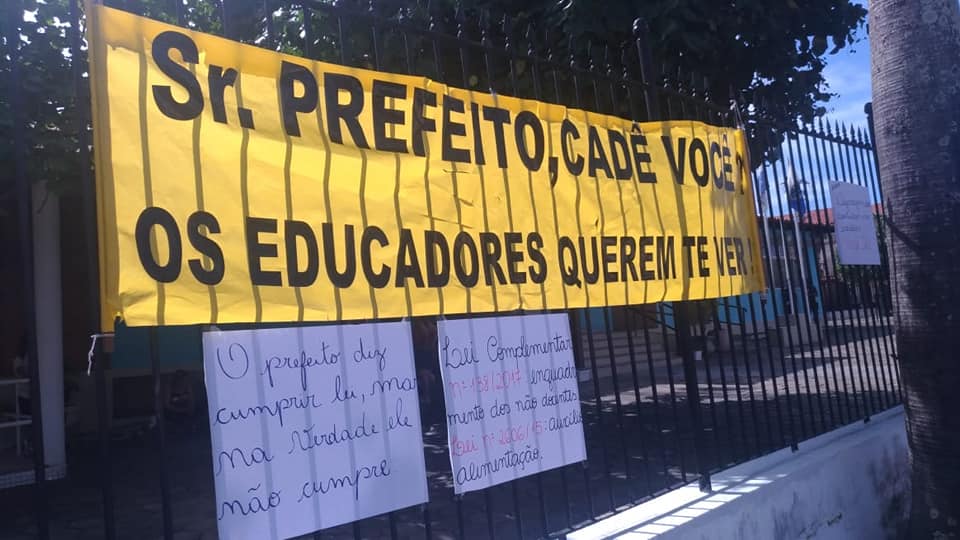 Sr. PREFEITO, CADÊ VOCÊ ?
OS EDUCADORES QUEREM TE VER !
O prefeito diz
cumprir lei, mas
na verdade ele
não cumpre.
Lei Complementar
nº 138/2017 enquadra
mento dos não docentes
Lei nº 2606/15: auxílio
alimentação.